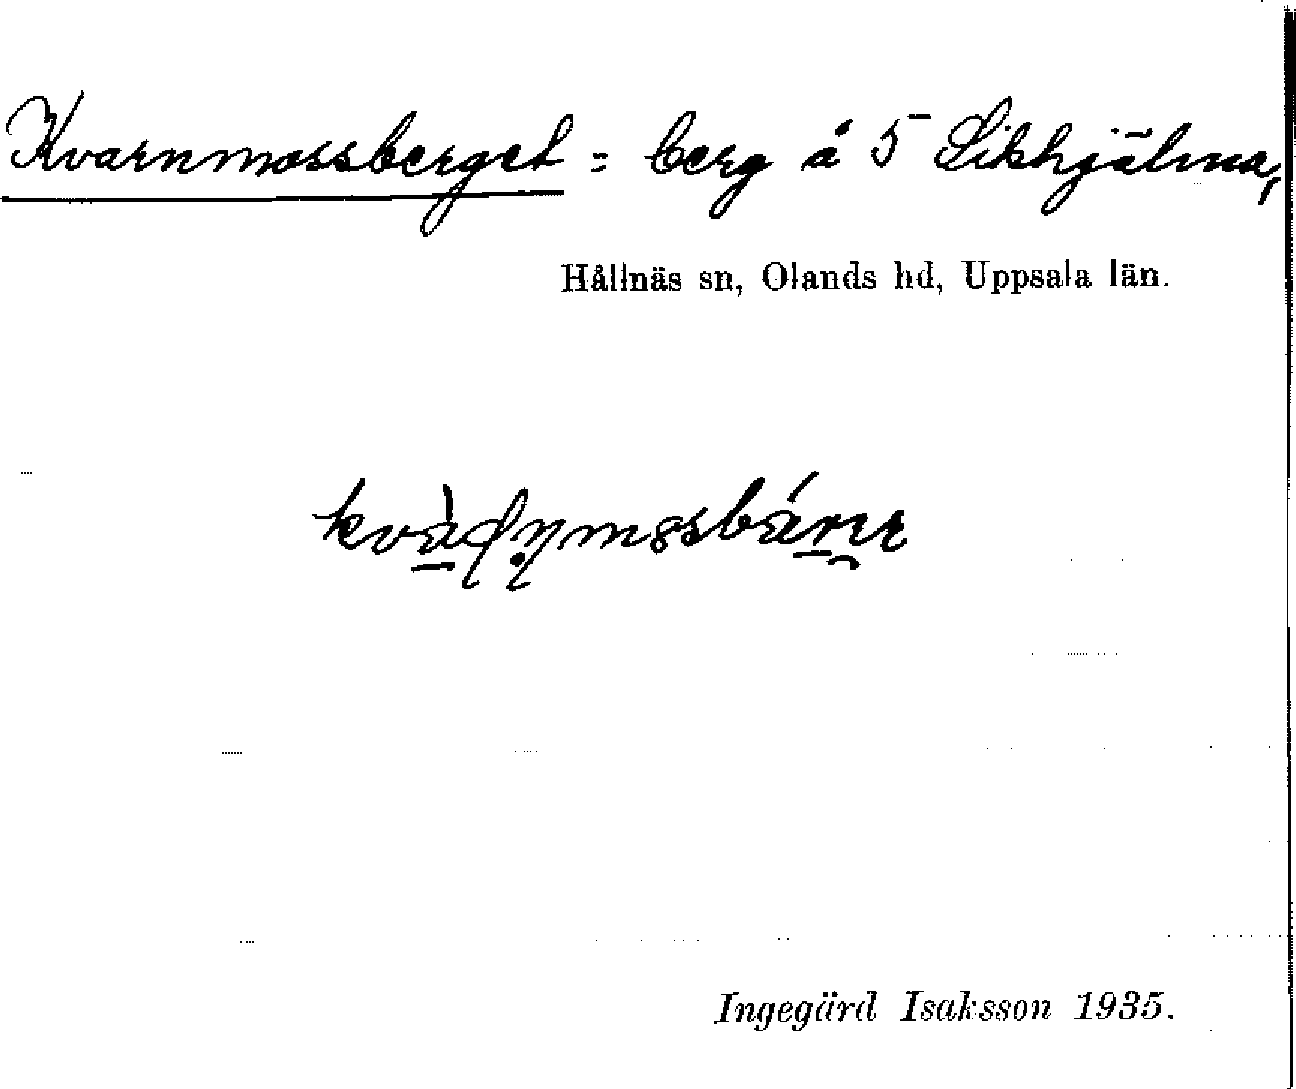 Kvarnmossberget = berg å 5 Sikhjälma,
Hållnäs sn, Olands hd, Uppsala län.
Ingegärd Isaksson 1935.